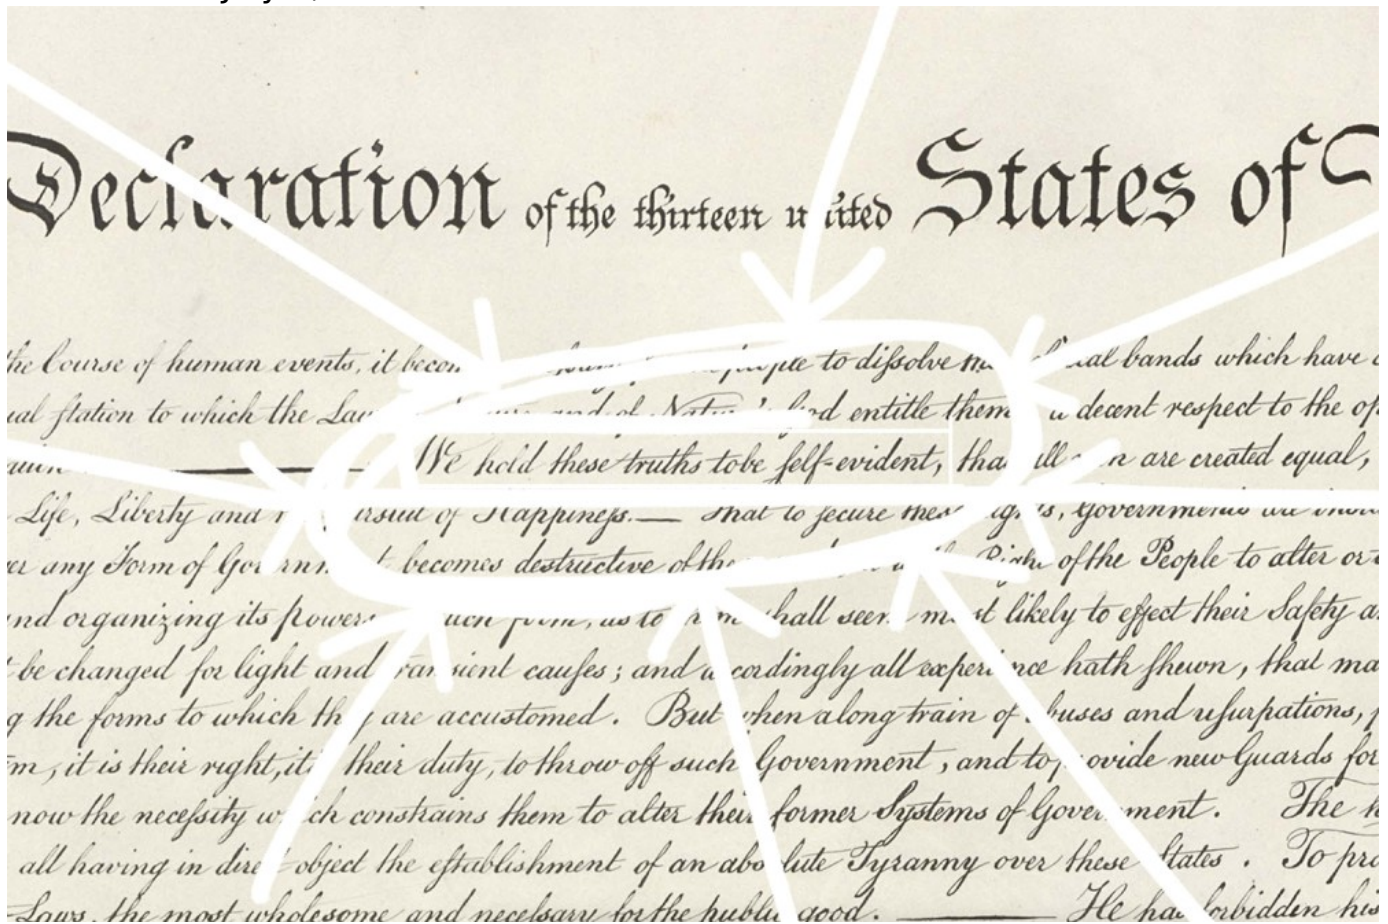 Declaration of the thirteen united States of
the Course of human events, it to dissolve bands which have
ual station to which the and of entitle them decent respect to the
We hold these truths to be self-evident, that all are created equal,
Life, Liberty and of Happiness. — That to secure these
any Form of becomes destructive of the Right of the People to alter or
and organizing its powers such form, as to shall seem most likely to effect their Safety
be changed for light and transient causes; and accordingly all experience hath shewn, that
g the forms to which they are accustomed. But when a long train of abuses and usurpations,
m, it is their right, it is their duty, to throw off such Government, and to provide new Guards for
now the necessity which constrains them to alter their former Systems of Government. The
all having in direct object the establishment of an absolute Tyranny over these States. To
Laws, the most wholesome and necessary for the public good. — He has forbidden his